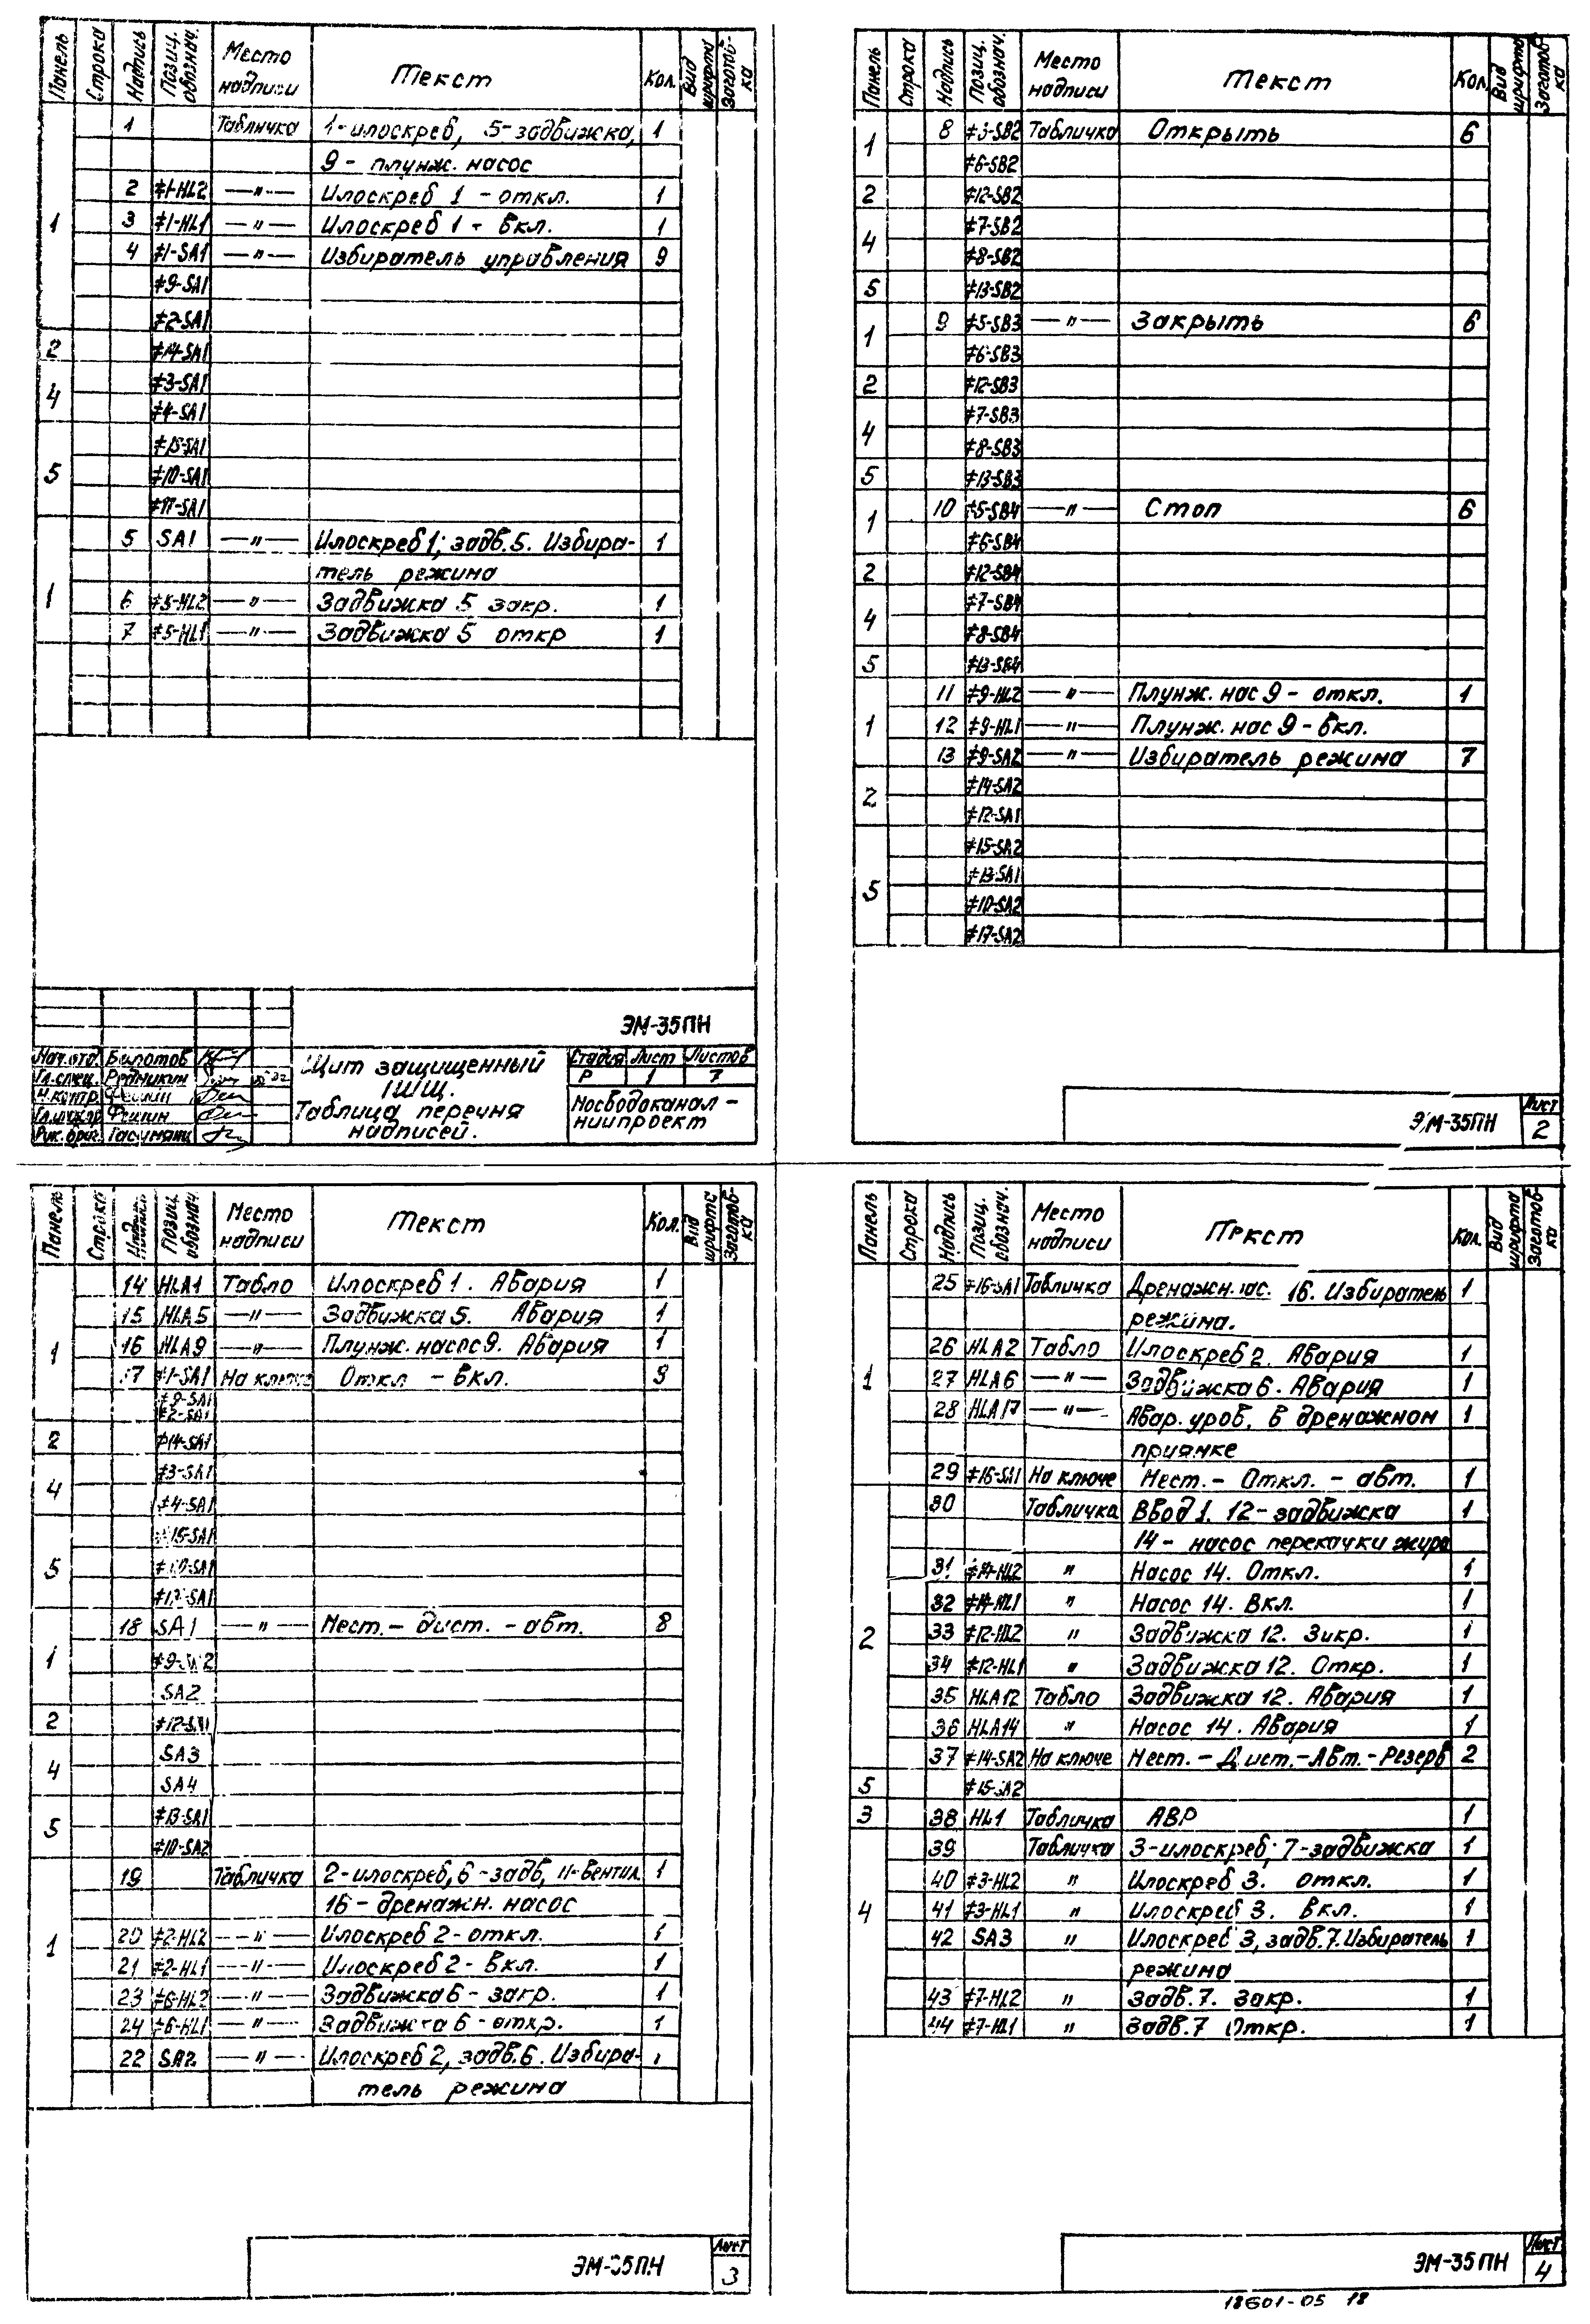 Панель Строка Надпись Позиц. обознач. Место надписи Текст Кол. Вид шрифта Заготов-ка
1 Табличка 1-илоскреб, 5-задвижка, 1
9 - плунж. насос
2 ≠1-HL2 —"— Илоскреб 1 - откл. 1
1 3 ≠1-HL1 —"— Илоскреб 1 - вкл. 1
4 ≠1-SA1 —"— Избиратель управления 9
≠9-SA1
≠2-SA1
2 ≠14-SA1
4 ≠3-SA1
≠4-SA1
≠15-SA1
5 ≠10-SA1
≠17-SA1
5 SA1 —"— Илоскреб 1; задв. 5. Избира- 1
тель режима
1 6 ≠5-HL2 —"— Задвижка 5 закр. 1
7 ≠5-HL1 —"— Задвижка 5 откр 1
ЭМ-35ПН
Нач. отд.
Гл. спец. Редникин
Н. контр. Фешин
Фешин
Рук. бриг.
Щит защищенный
1ШЩ.
Таблица перечня
надписей.
Стадия Лист Листов
Р 1 7
Мосводоканал -
ниипроект
Панель Строка Надпись Позиц. обознач. Место надписи Текст Кол. Вид шрифта Заготов-ка
1 8 ≠5-SB2 Табличка Открыть 6
≠6-SB2
2 ≠12-SB2
4 ≠7-SB2
≠8-SB2
5 ≠13-SB2
1 9 ≠5-SB3 —"— Закрыть 6
≠6-SB3
2 ≠12-SB3
4 ≠7-SB3
≠8-SB3
5 ≠13-SB3
1 10 ≠5-SB4 —"— Стоп 6
≠6-SB4
2 ≠12-SB4
4 ≠7-SB4
≠8-SB4
5 ≠13-SB4
11 ≠9-HL2 —"— Плунж. нас 9 - откл. 1
1 12 ≠9-HL1 —"— Плунж. нас 9 - вкл.
13 ≠9-SA2 —"— Избиратель режима 7
2 ≠14-SA2
≠12-SA1
≠15-SA2
5 ≠13-SA1
≠10-SA2
≠17-SA2
ЭМ-35ПН
Лист
2
Панель Строка Надпись Позиц. обознач. Место надписи Текст Кол. Вид шрифта Заготов-ка
14 HLA1 Табло Илоскреб 1. Авария 1
15 HLA5 —"— Задвижка 5. Авария 1
1 16 HLA9 —"— Плунж. насос 9. Авария 1
17 ≠1-SA1 На ключе Откл - вкл. 9
≠9-SA1
≠2-SA1
2 ≠14-SA1
4 ≠3-SA1
≠4-SA1
≠15-SA1
5 ≠10-SA1
≠17-SA1
18 SA1 —"— Мест. - дист. - авт. 8
1 ≠9-SA2
SA2
2 ≠12-SA1
4 SA3
SA4
5 ≠13-SA1
≠10-SA2
19 Табличка 2-илоскреб, 6-задв, 11-вентил. 1
16 - дренажн. насос
1 20 ≠2-HL2 —"— Илоскреб 2 - откл. 1
21 ≠2-HL1 —"— Илоскреб 2 - вкл. 1
23 ≠6-HL2 —"— Задвижка 6 - закр. 1
24 ≠6-HL1 —"— Задвижка 6 - откр. 1
22 SA2 —"— Илоскреб 2, задв. 6. Избира- 1
тель режима
ЭМ-35ПН
Лист
3
Панель Строка Надпись Позиц. обознач. Место надписи Текст Кол. Вид шрифта Заготов-ка
25 ≠16-SA1 Табличка Дренажн. нас. 16. Избиратель 1
режима.
26 HLA2 Табло Илоскреб 2. Авария 1
1 27 HLA6 —"— Задвижка 6. Авария 1
28 HLA17 —"— Авар. уров. в дренажном 1
приямке
29 ≠16-SA1 На ключе Мест. - Откл. - авт. 1
30 Табличка Ввод 1. 12-задвижка 1
14 - насос перекачки жира
31 ≠14-HL2 " Насос 14. Откл. 1
32 ≠14-HL1 " Насос 14. Вкл. 1
2 33 ≠12-HL2 " Задвижка 12. Закр. 1
34 ≠12-HL1 " Задвижка 12. Откр. 1
35 HLA12 Табло Задвижка 12. Авария 1
36 HLA14 " Насос 14. Авария 1
37 ≠14-SA2 На ключе Мест. - Дист. - Авт. - Резерв 2
5 ≠15-SA2
3 38 HL1 Табличка АВР 1
39 Табличка 3-илоскреб; 7-задвижка 1
40 ≠3-HL2 " Илоскреб 3. откл. 1
4 41 ≠3-HL1 " Илоскреб 3. Вкл. 1
42 SA3 " Илоскреб 3, задв. 7. Избиратель 1
режима
43 ≠7-HL2 " Задв. 7. Закр. 1
44 ≠7-HL1 " Задв. 7 Откр. 1
ЭМ-35ПН
Лист
4
18601-05 18